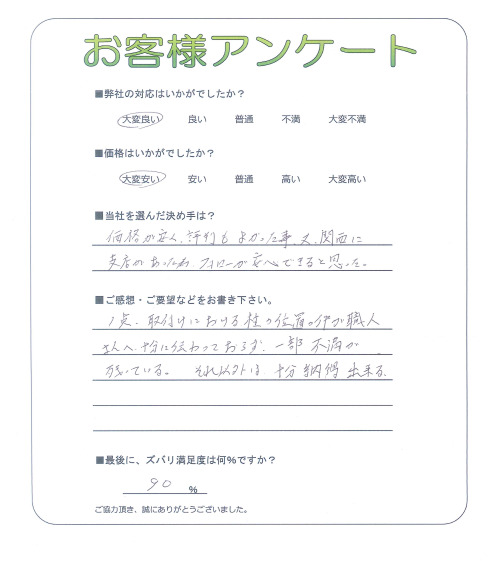 お客様アンケート
■弊社の対応はいかがでしたか?
大変良い 良い 普通 不満 大変不満
■価格はいかがでしたか?
大変安い 安い 普通 高い 大変高い
■当社を選んだ決め手は?
価格が安く、評判もよかった事、又、関西に
支店があったため、フォローが安心できると思った。
■ご感想・ご要望などをお書き下さい。
1点、取付けにおける柱の位置の件が職人
さんへ十分に伝わっておらず、一部不満が
残っている。 それ以外は、十分納得出来る。
■最後に、ズバリ満足度は何%ですか?
90 %
ご協力頂き、誠にありがとうございました。